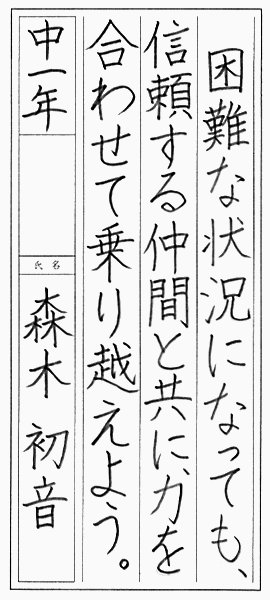 困難な状況になっても、
信頼する仲間と共に力を
合わせて乗り越えよう。
中一年
氏名
森木 初音